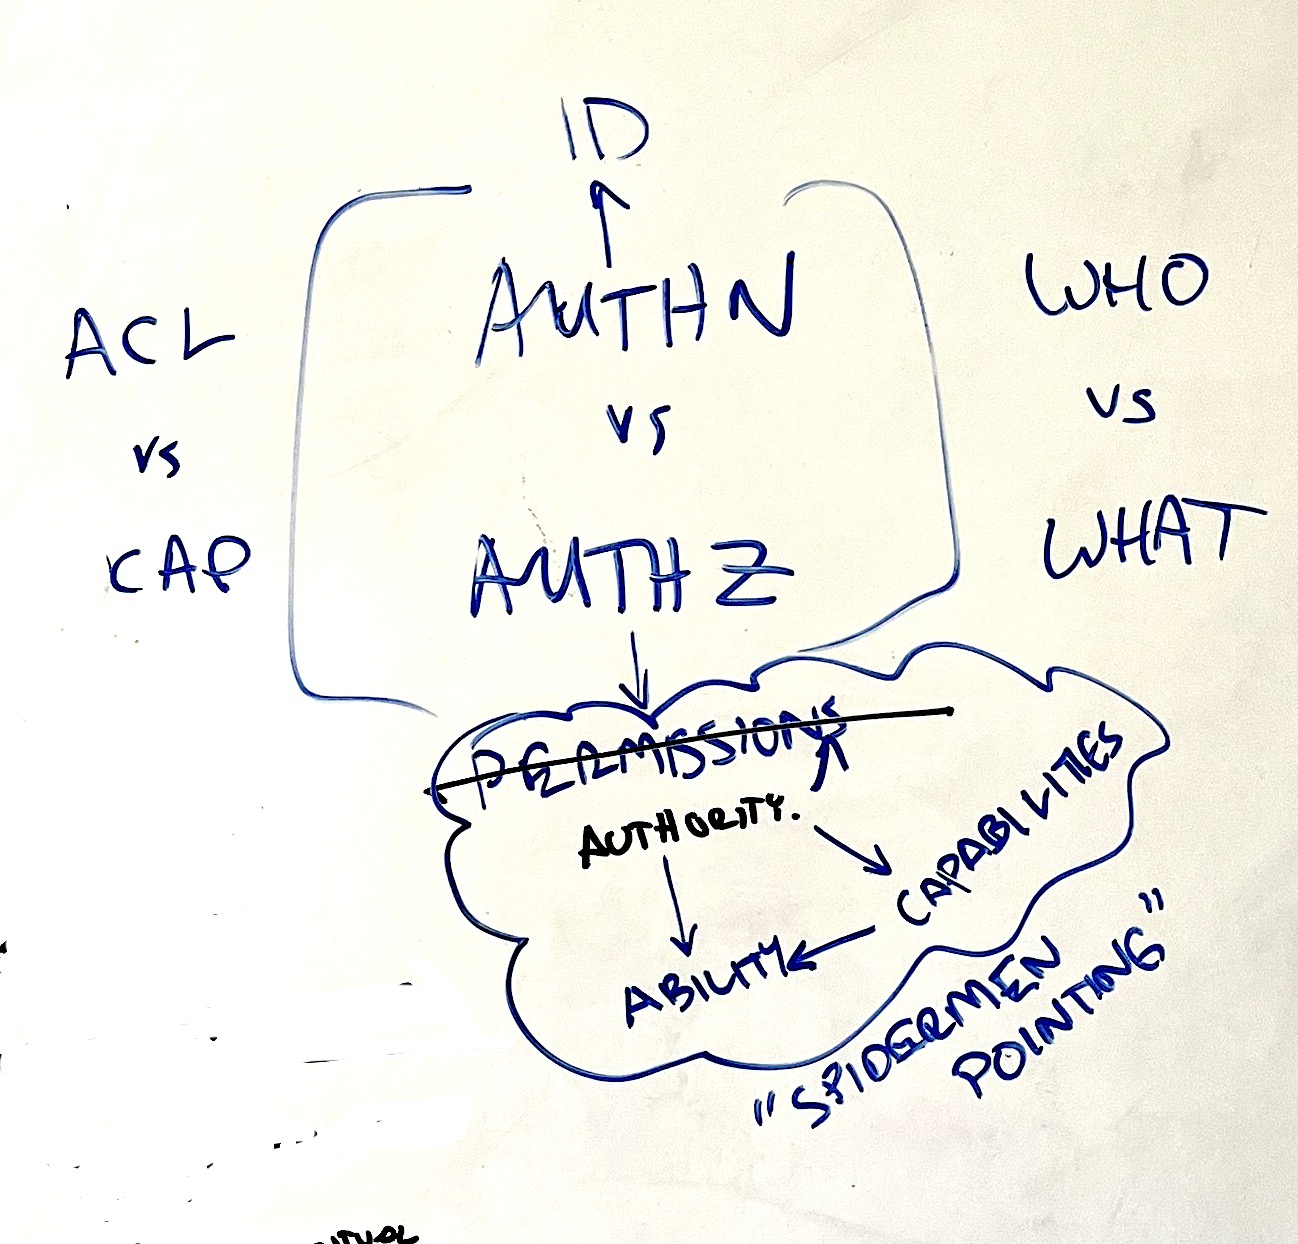 ID
ACL
vs
CAP
AUTHN
vs
AUTHZ
WHO
vs
WHAT
PERMISSIONS
AUTHORITY.
CAPABILITIES
ABILITY
"SPIDERMEN
POINTING"